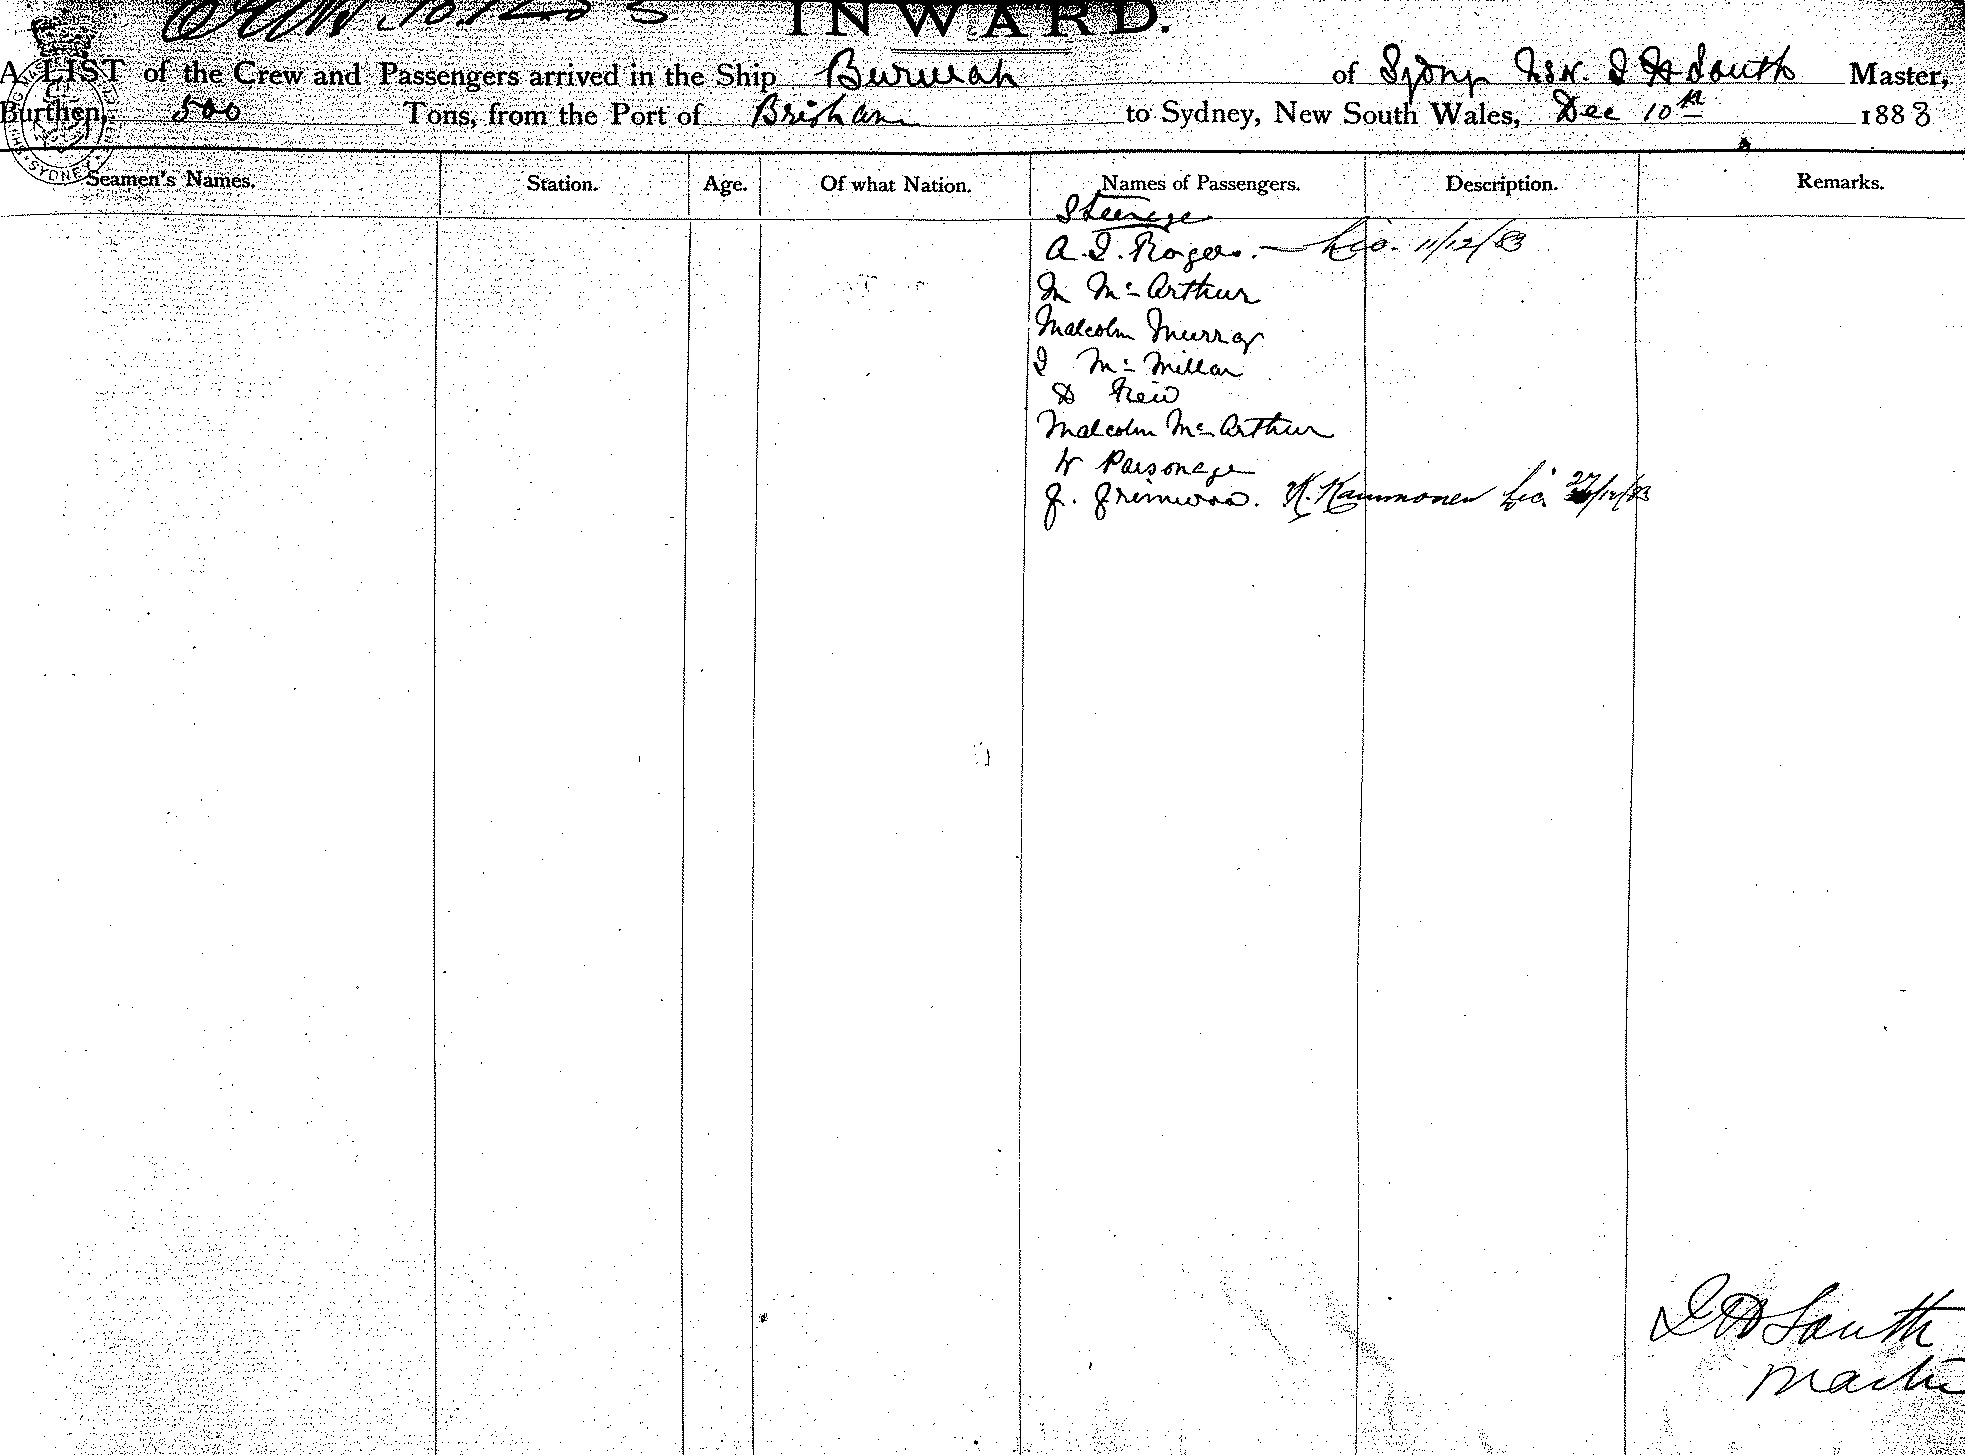 INWARD.
A LIST of the Crew and Passengers arrived in the Ship Burwah of Sydny NSW. J H South Master,
Burthen, 500 Tons, from the Port of Brisbane to Sydney, New South Wales, Dec 10th 1883
SYDNEY
Seamen's Names. Station. Age. Of what Nation. Names of Passengers. Description. Remarks.
Steerage
A. J. Rogers. — Lic. 11/12/83
M Mc Arthur
Malcolm Murray
J Mc Millan
D Reid
Malcolm Mc Arthur
W Parsonage
F. Grimwood. K. Kammonen Lic. /12/83
J H South
Master